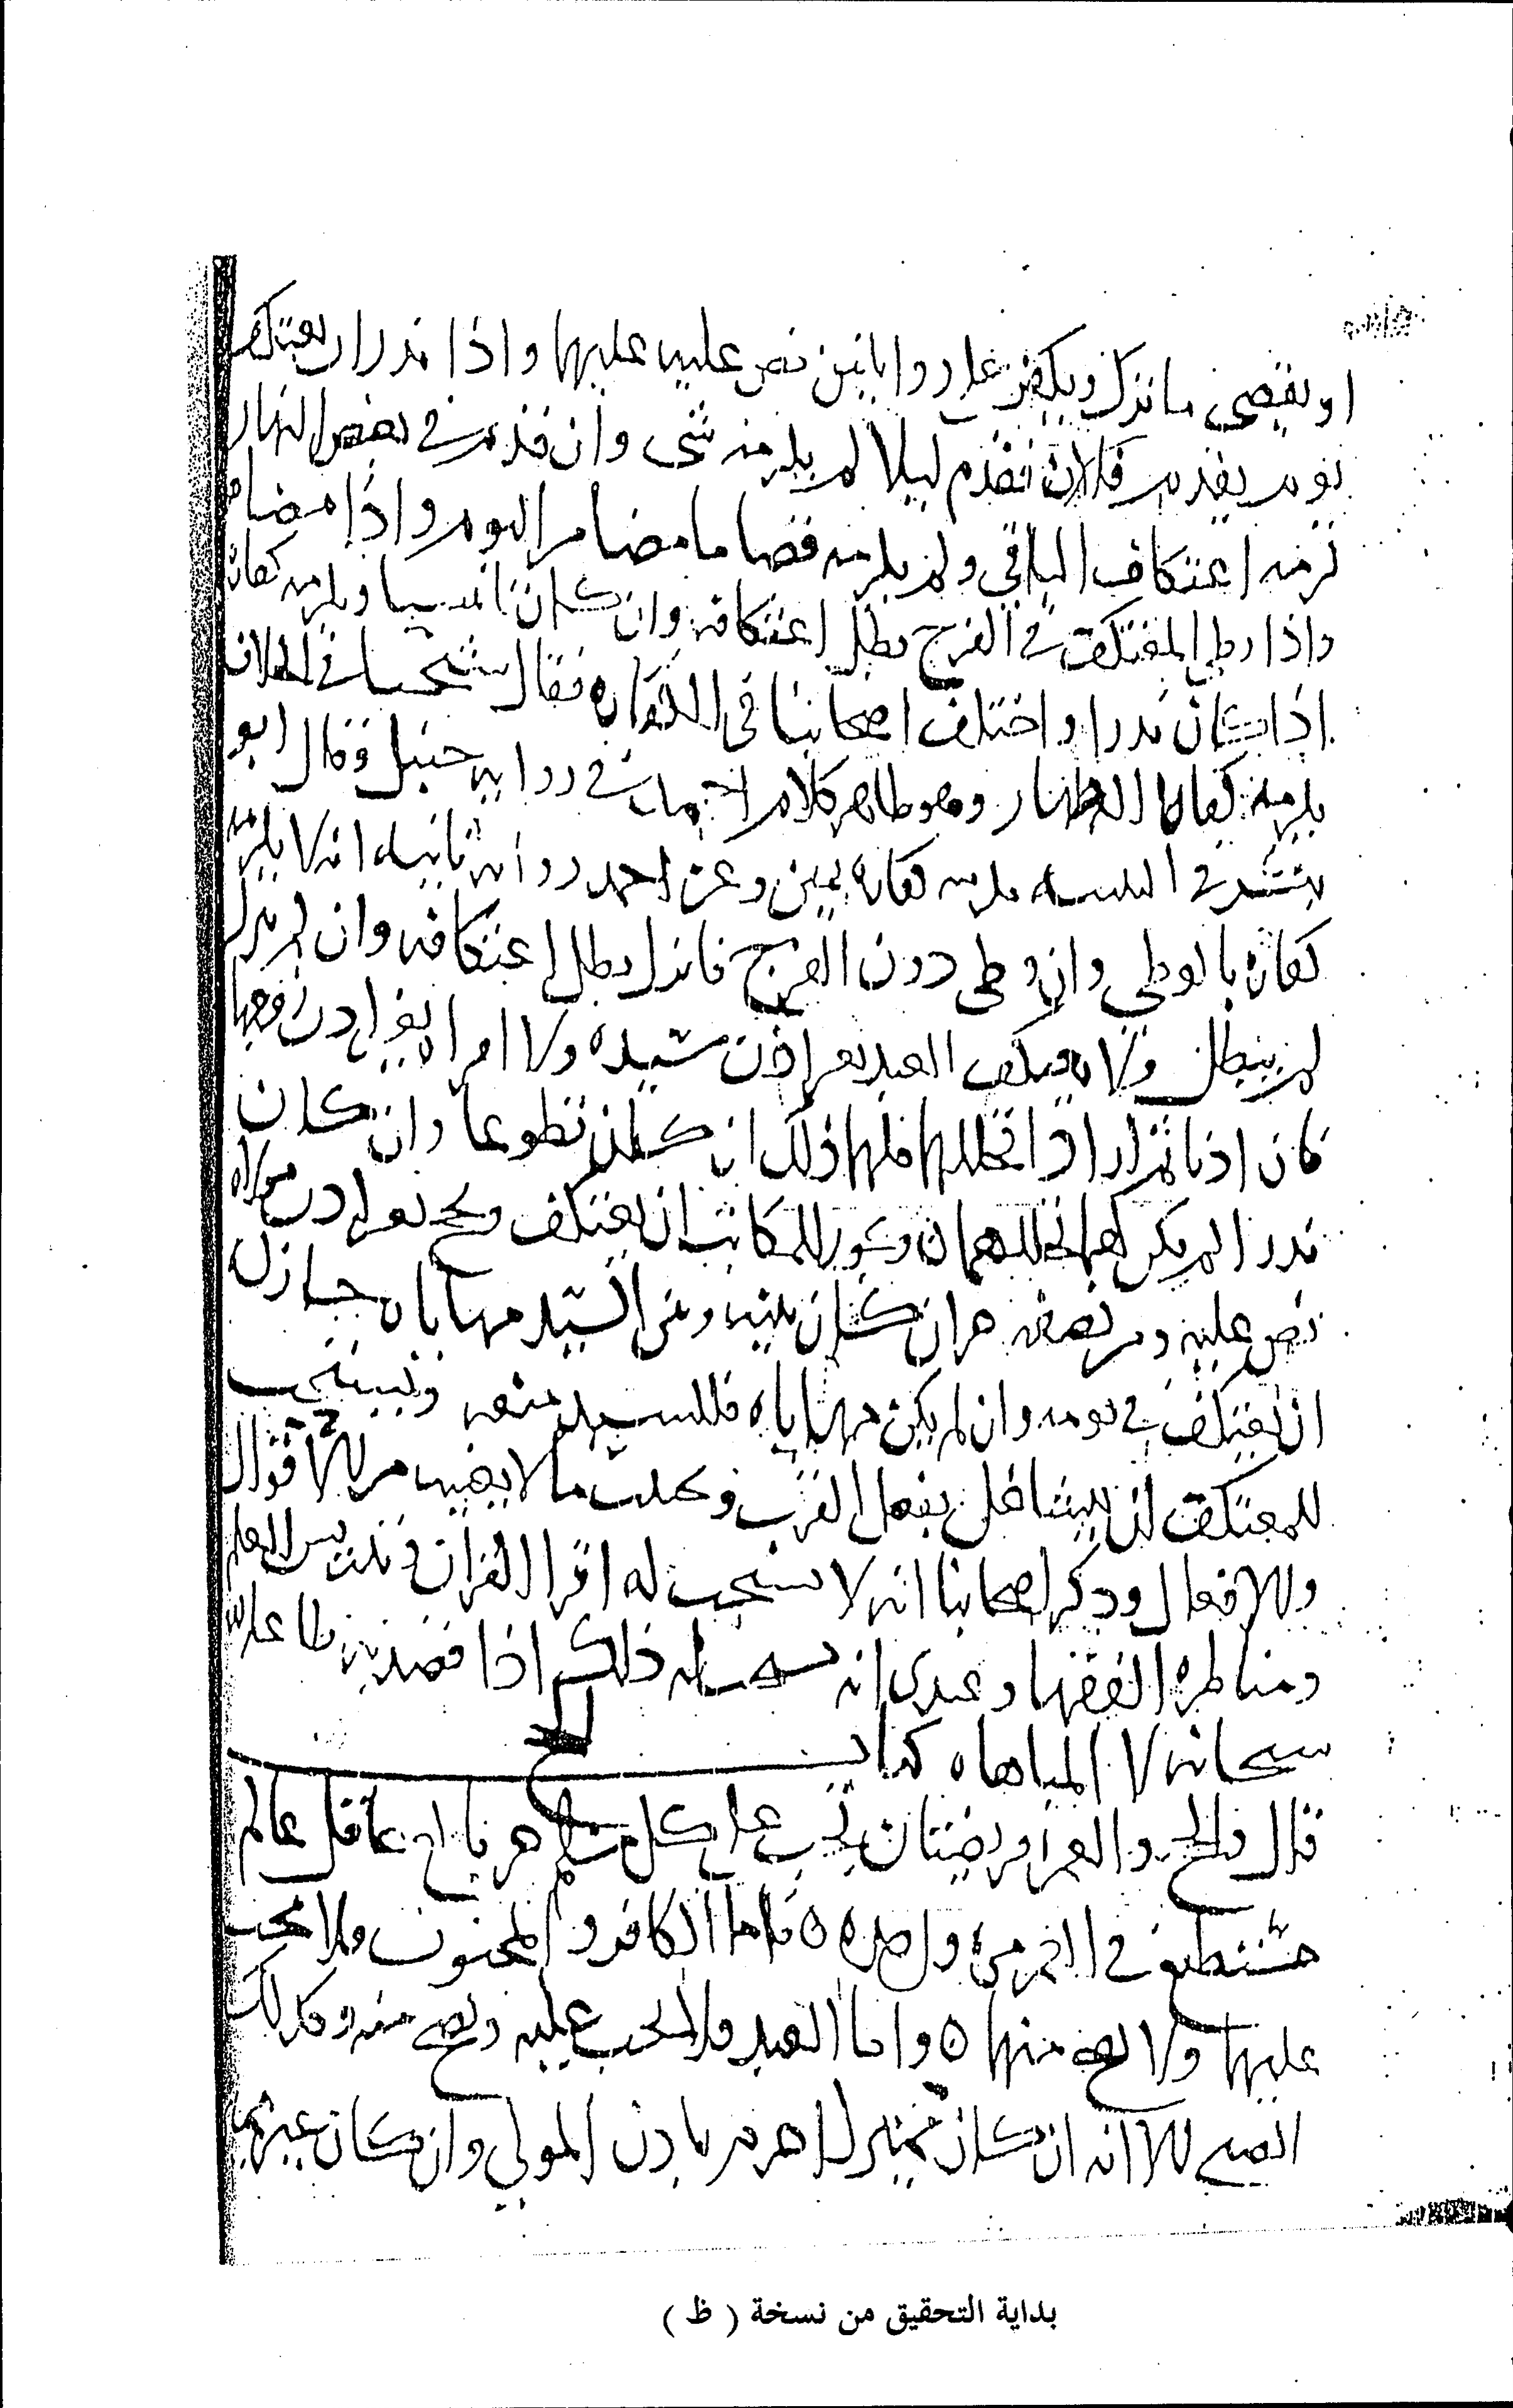 او يقضي ما ترك ويكفر على روايتين نص عليهما واذا نذر ان يعتكف
يوم يقدم فلان فقدم ليلا لم يلزمه شي وان قدم في بعض النهار
لزمه اعتكاف الباقي ولم يلزمه قضا ما مضا من اليوم واذا
واذا وطي المعتكف في الفرج بطل اعتكافه وان كان ناسيا ويلزمه كفارة
اذا كان نذرا واختلف اصحابنا في الكفاره فقال شيخنا في الخلاف
يلزمه كفارة الظهار وهو ظاهر كلام احمد في رواية حنبل وقال ابو
بكر في التنبيه يلزمه كفارة يمين وعن احمد رواية ثانيه انه لا يلزمه
كفاره بالوطي وان وطي دون الفرج فانزل بطل اعتكافه وان لم ينزل
لم يبطل ولا يعتكف العبد بغير اذن سيده ولا امراة بغير اذن زوجها
فان اذنا ثم ارادا تحليلهما فلهما ذلك ان كان تطوعا وان كان
نذرا لم يكن لهما تحليلهما ويجوز للمكاتب ان يعتكف ويحج بغير اذن مولاه
نص عليه ومن نصفه حر ان كان بينه وبين السيد مهاياه جاز له
ان يعتكف في يومه وان لم يكن مهاياه فللسيد منعه ويستحب
للمعتكف ان يتشاغل بفعل القرب ويجتنب ما لا يعنيه من الاقوال
والافعال وذكر اصحابنا انه لا يستحب له اقرا القران وتدريس العلم
ومناظرة الفقها وعندي انه يستحب له ذلك اذا قصد به طاعة الله
سبحانه لا المباهاه كتاب الحج
قال والحج والعمرة فريضتان تجب على كل مسلم حر بالغ عاقل عالم
مستطيع في العمر مرة واحده ٥ فاما الكافر والمجنون فلا يجب
عليهما ولا يصح منهما ٥ واما العبد فلا يجب عليه ويصح منه وكذلك
الصبي الا انه ان كان مميزا احرم باذن الولي وان كان غير مميز
بداية التحقيق من نسخة ( ظ )